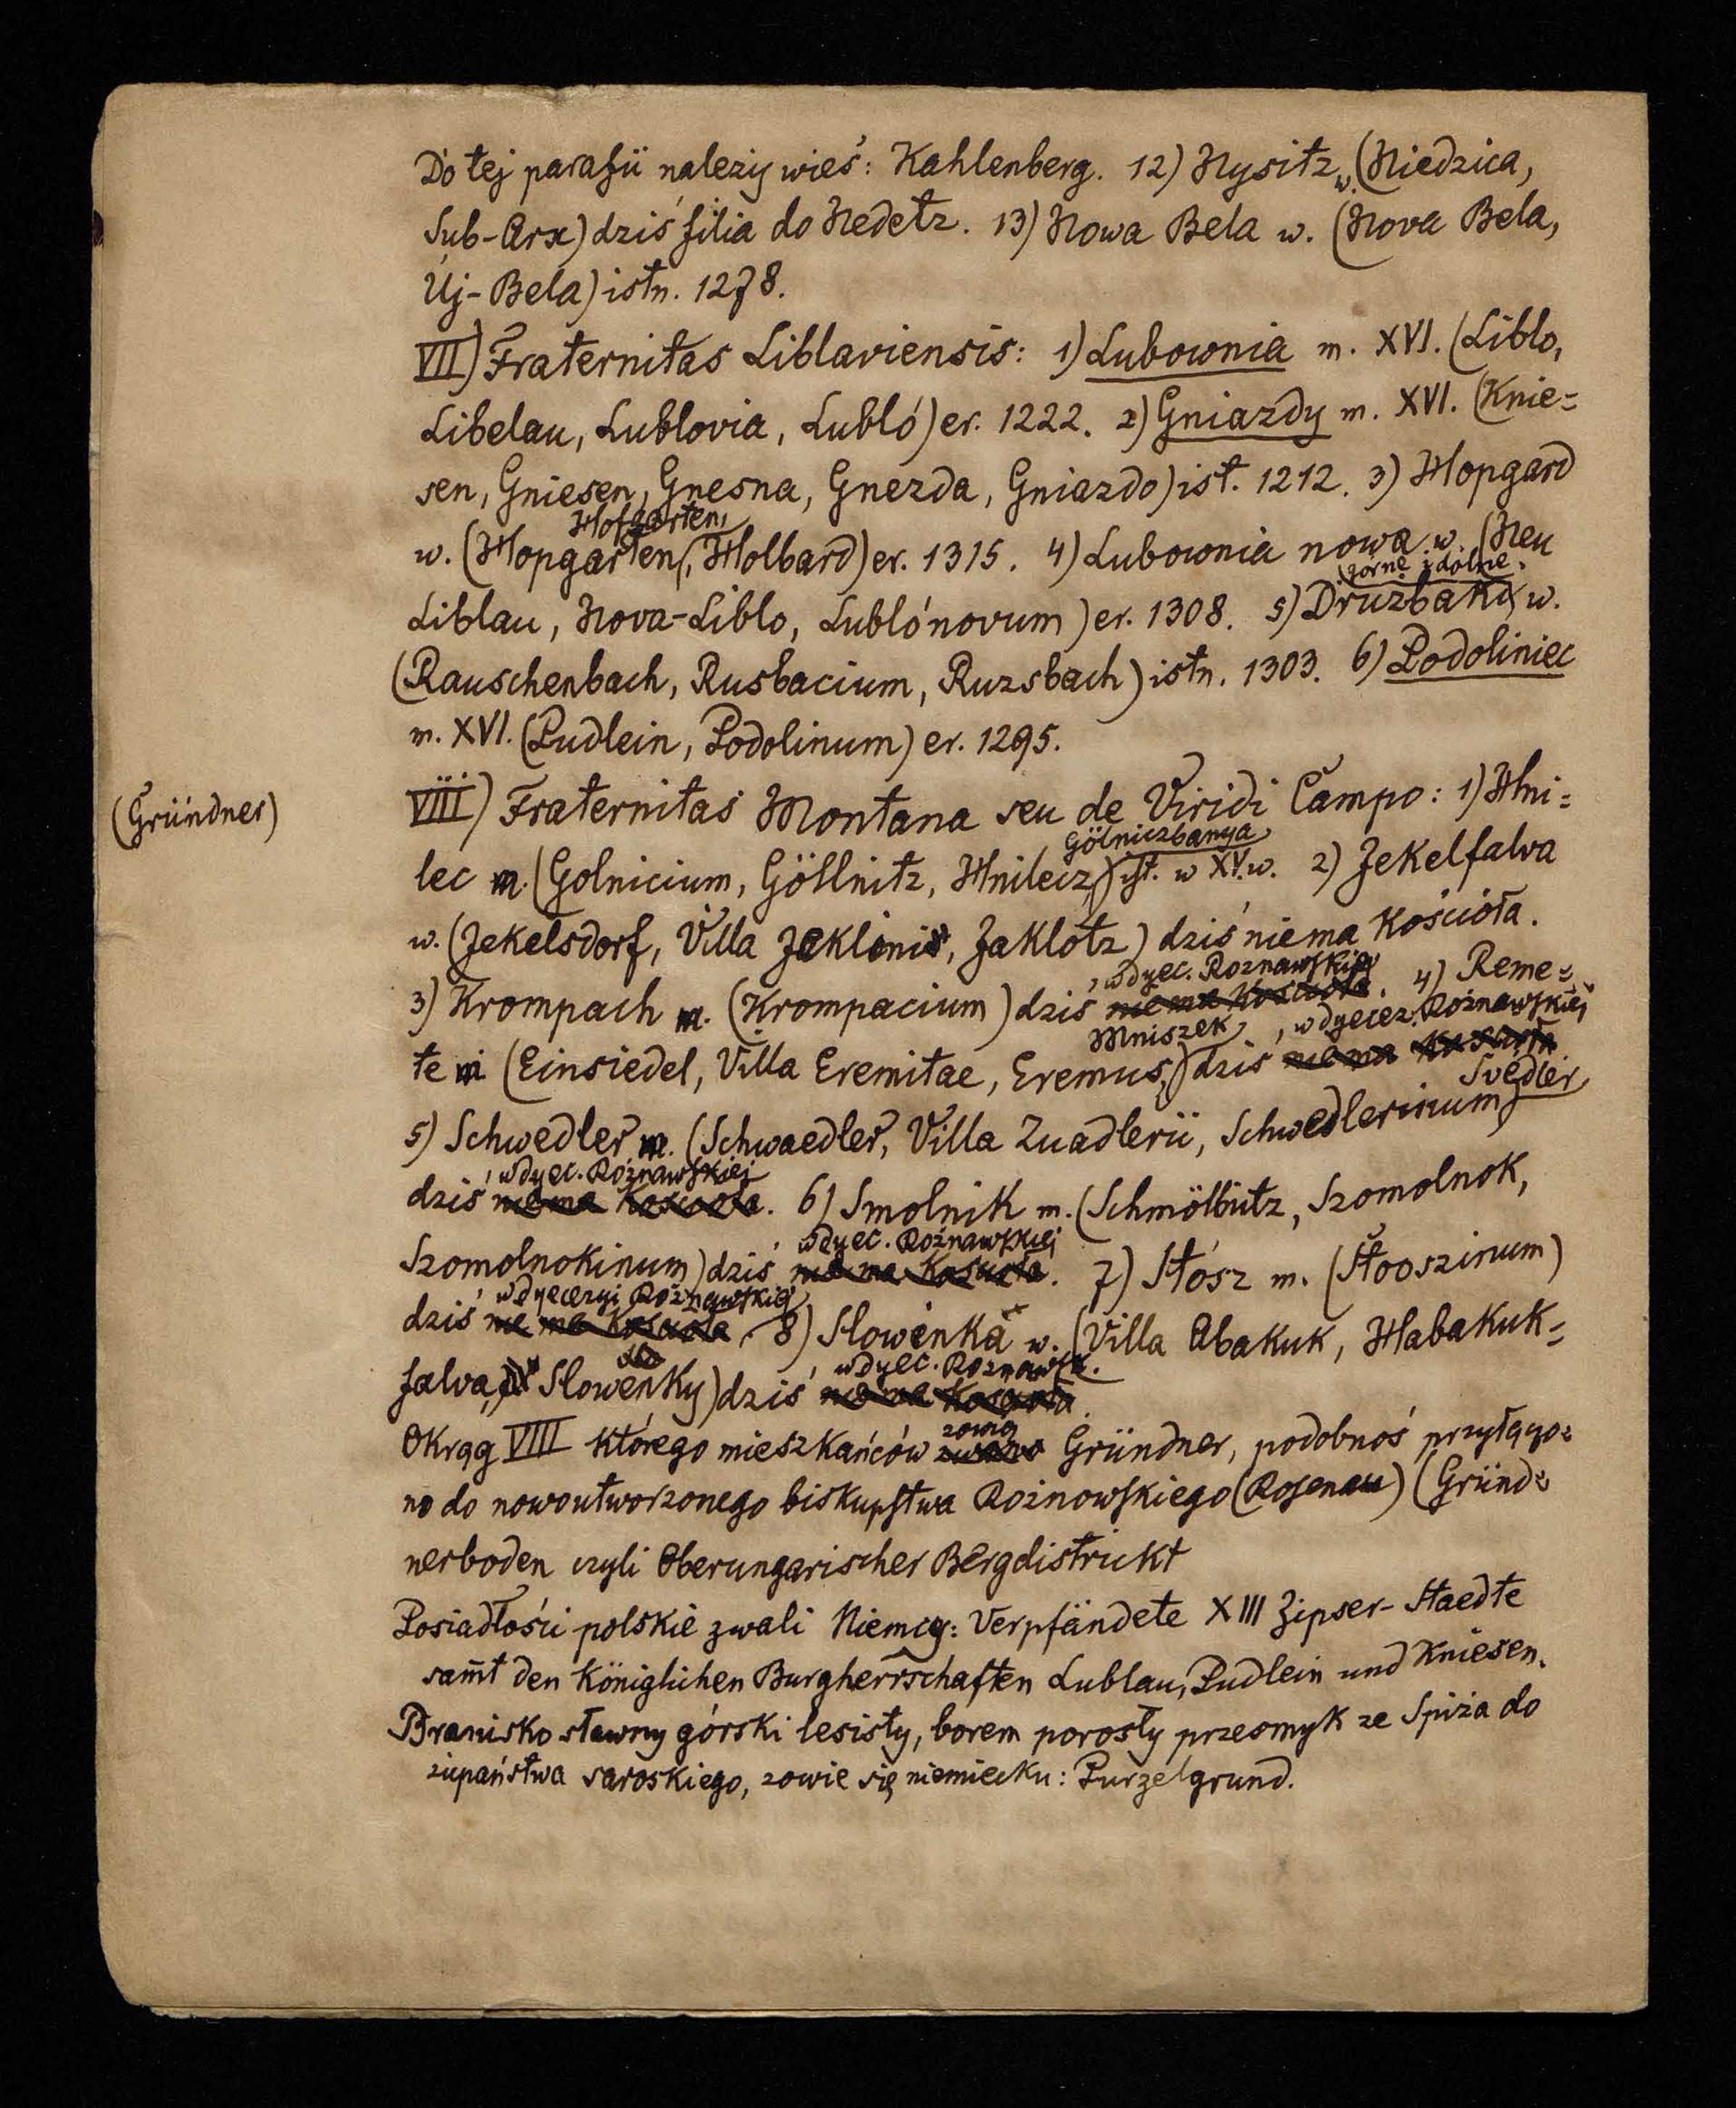 Do tej parafii należy wieś: Kahlenberg. 12) Nysitz w. (Niedzica,
Sub-Arx) dziś filia do Nedetz. 13) Nowa Bela w. (Nova Bela,
Új-Bela) istn. 1278.
VII) Fraternitas Liblaviensis: 1) Lubownia m. XVI. (Liblo,
Libelau, Lublovia, Lubló) er. 1222. 2) Gniazdy m. XVI. (Knie=
sen, Gniesen, Gnesna, Gnezda, Gniazdo) ist. 1212. 3) Hopgard
Hofgarten,
w. (Hopgarten, Holbard) er. 1315. 4) Lubownia nowa w. (Neu
górne i dolne,
Liblau, Nova-Liblo, Lublónovum) er. 1308. 5) Drużbaki w.
(Rauschenbach, Rusbacium, Ruzsbach) istn. 1303. 6) Podoliniec
m. XVI. (Pudlein, Podolinum) er. 1295.
(Gründner)
VIII) Fraternitas Montana seu de Viridi Campo: 1) Hni=
Gölniczbanya
lec m. (Golnicium, Göllnitz, Hnilecz,) ist. w XV. w. 2) Jekelfalva
w. (Jekelsdorf, Villa Jeklinis, Jaklotz) dziś niema Kościoła.
, w dyec. Roznawskiej
3) Krompach m. (Krompacium) dziś nie ma Kościoła. 4) Reme=
Mniszek , w dyecez. Rożnawskiej
te m (Einsiedel, Villa Eremitae, Eremus,) dziś nie ma Kościoła
Svedler
5) Schwedler m. (Schwaedler, Villa Zuadlerii, Schwedlerinum)
, w dyec. Rożnawskiej
dziś nie ma Kościoła. 6) Smolnik m. (Schmölbutz, Szomolnok,
w dyec. Rożnawskiej
Szomolnokinum) dziś nie ma Kościoła. 7) Stósz m. (Stooszinum)
w dyecezyi Rożnawskiej
dziś nie ma Kościoła. 8) Slowenka w. (Villa Abakuk, Habakuk=
, w dyec. Roznawsk.
falva, Slowenky) dziś nie ma Kościoła.
zowią
Okrąg VIII którego mieszkańców zwano Gründner, podobnoś przyłączo=
no do nowoutworzonego biskupstwa Rożnowskiego (Rosenau) (Gründ=
nerboden czyli Oberungarischer Bergdistrickt
Posiadłości polskie zwali Niemcy: Verpfändete XIII Zipser-Staedte
sam̄t den Königlichen Burgherrschaften Lublau, Pudlein und Kniesen.
Branisko sławny górski lesisty, borem porosły przesmyk ze Spiża do
żupaństwa saroskiego, zowie się niemiecku: Purzelgrund.